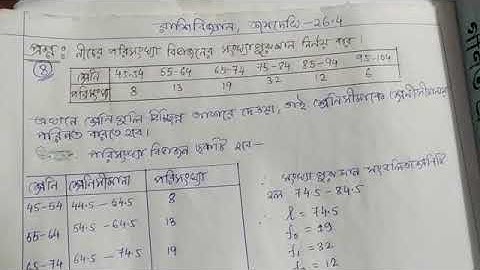 রাশিবিজ্ঞান, কষেদেখি-26.4
প্রশ্ন: নীচের পরিসংখ্যা বিভাজনের সংখ্যাগুরুমান নির্ণয় করো।
8
শ্রেণি 45-54 55-64 65-74 75-84 85-94 95-104
পরিসংখ্যা 8 13 19 32 12 6
এখানে শ্রেণিগুলি বিচ্ছিন্ন আকারে দেওয়া, তাই শ্রেণিসীমাকে শ্রেণিসীমানায়
পরিণত করতে হবে।
পরিসংখ্যা বিভাজন ছকটি হল-
শ্রেণি শ্রেণিসীমানা পরিসংখ্যা
45-54 44.5-54.5 8
55-64 54.5-64.5 13
65-74 64.5-74.5 19
∴ সংখ্যাগুরুমান সংবলিত শ্রেণিটি
হল 74.5-84.5
∴ l = 74.5
f₀ = 19
f₁ = 32
f₂ = 12